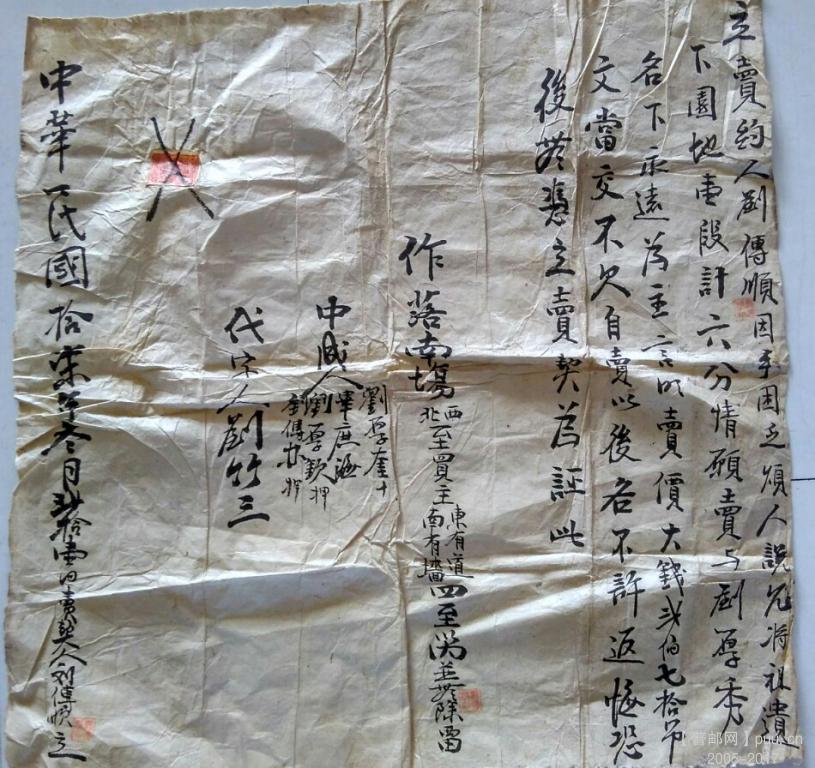 立賣約人劉傳順因手困乏煩人說允将祖遺
下園地壹段計六分情願賣与劉厚秀
名下永遠为主言明賣價大錢弍伯七拾吊
文當交不欠自賣以後各不許返悔恐
後無憑立賣契爲証此
作落南場
西北至買主
東有道
南有墻
四至淂并無除留
中人
劉厚奎十
劉厚欽押
代字人劉竹三
中華民國拾柒年叁月弍拾壹日賣契人刘傳順立
【普邮网】puu.cn
2005-2017